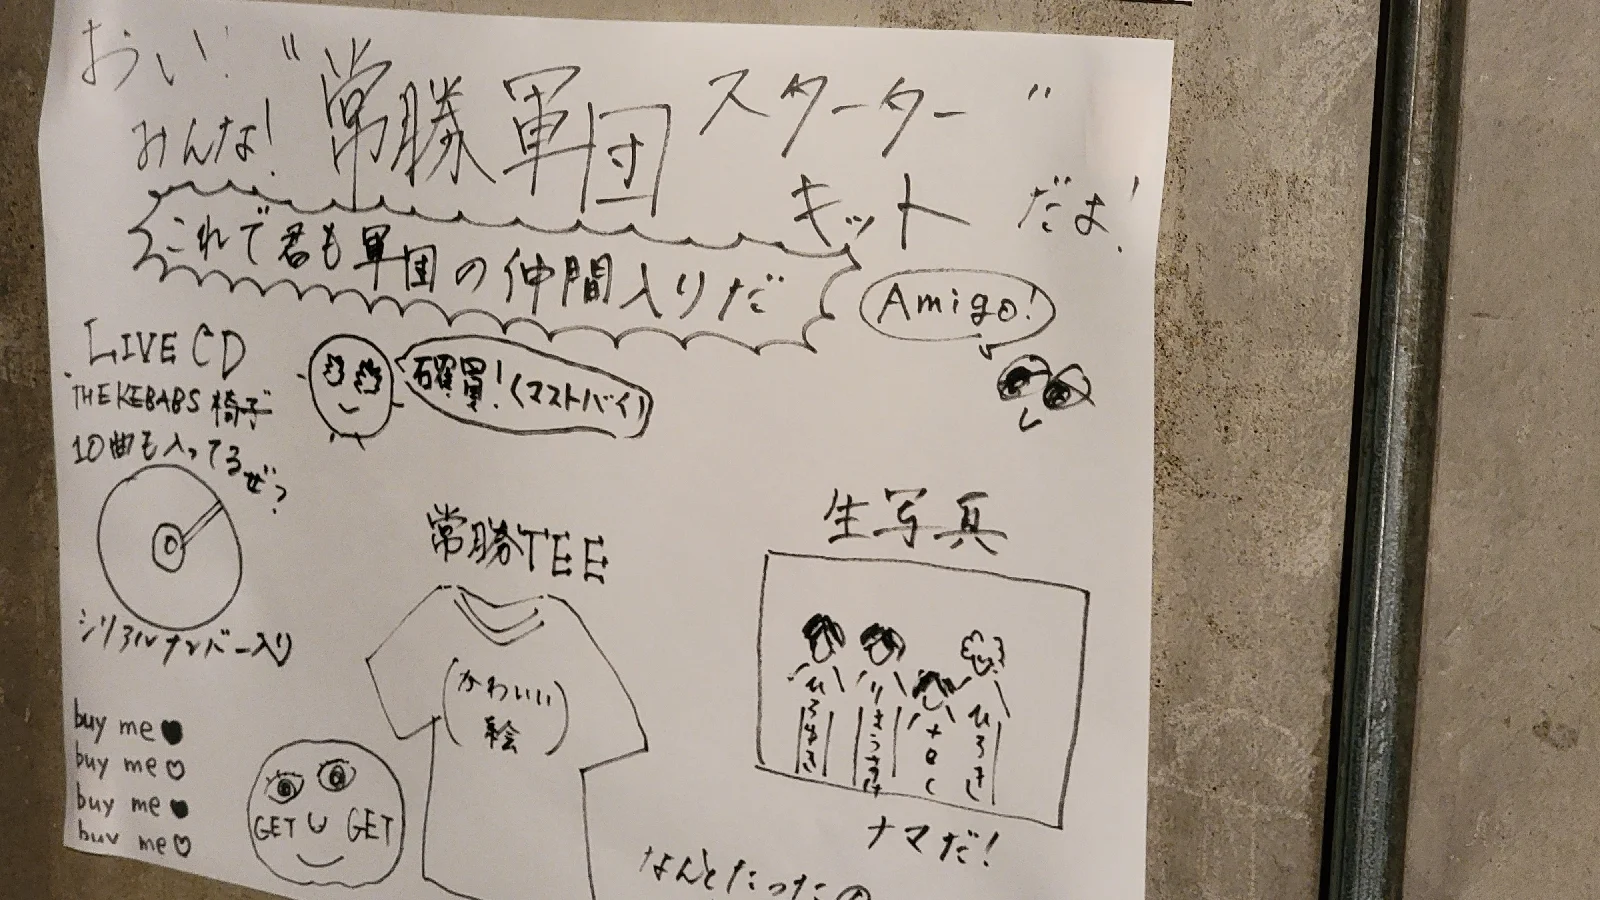 おい!
みんな!
"常勝軍団スターター
キット"だよ!
これで君も軍団の仲間入りだ
Amigo!
LIVE CD
THE KEBABS 椅子
10曲も入ってるぜ?
確買!(マストバイ)
シリアルナンバー入り
常勝TEE
(かわいい
絵)
生写真
ひろゆき
りょうすけ
ひろき
ナマだ!
buy me♥
buy me♡
buy me♥
buy me♡
GET U GET
なんとたったの